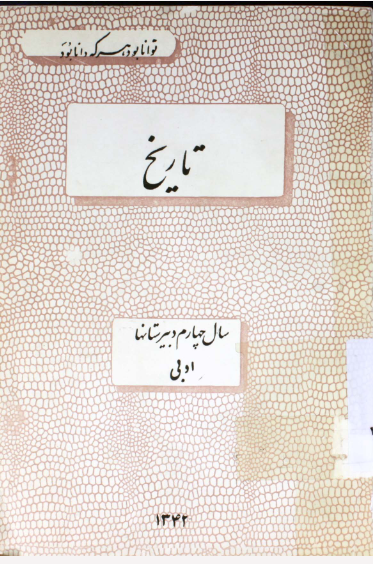 توانا بود هر که دانا بود
تاریخ
سال چهارم دبیرستانها
ادبی
۱۳۴۲